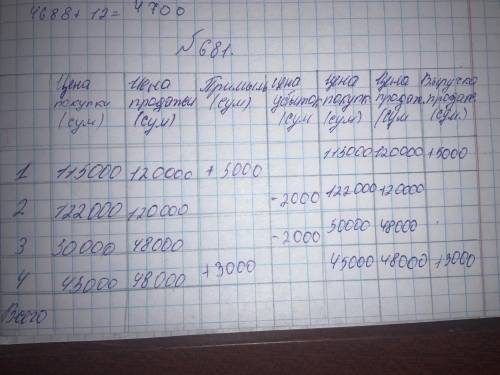 4688 + 12 = 4700
№681.
Цена покупки (сум) Цена продажи (сум) Прибыль (сум) цена убыток (сум цена покупк (сум) Цена продаж. (сум Выручка продаж (сум)
115000 120000 +5000
1 115000 120000 +5000
-2000 122000 120000
2 122000 120000
50000 48000
3 50000 48000 -2000
4 45000 48000 +3000 45000 48000 +3000
Всего